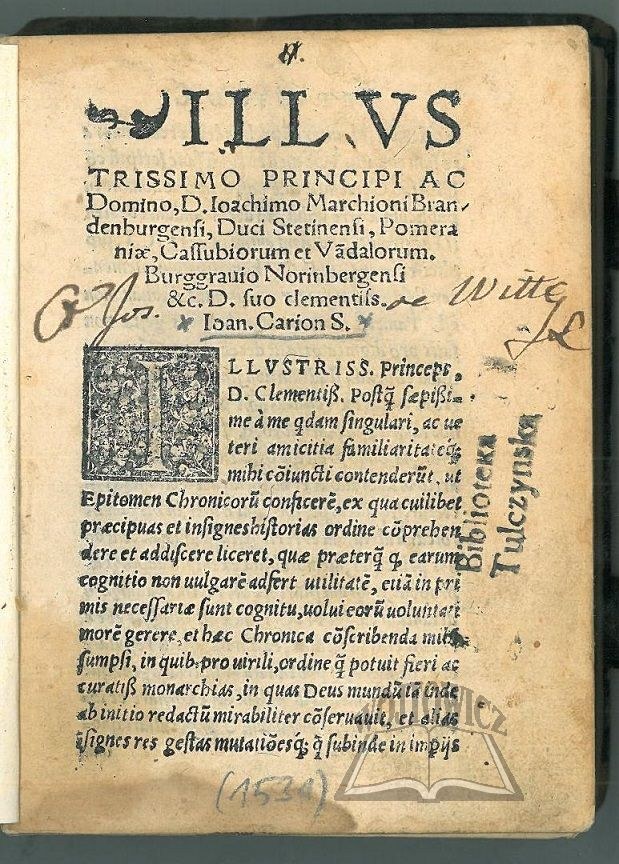 ILLVS
TRISSIMO PRINCIPI AC
Domino, D. Ioachimo Marchioni Bran-
denburgensi, Duci Stetinensi, Pomera
niæ, Cassubiorum et Vādalorum.
Burggrauio Norinbergensi
&c. D. suo clementiss.
Ioan. Carion S.
Jos. de Witte
ILLVSTRISS. Princeps,
D. Clementiß. Postq̃ sæpißi-
me à me qdam singulari, ac ue
teri amicitia familiaritateq́;
mihi cōiuncti contenderūt, ut
Epitomen Chronicorū conficerē, ex qua cuilibet
præcipuas et insignes historias ordine cōprehen
dere et addiscere liceret, quæ præterq̃ q, earum
cognitio non uulgarē adfert utilitatē, etiā in pri
mis necessariæ sunt cognitu, uolui eorū uoluntati
morē gerere, et hæc Chronica cōscribenda mihi
sumpsi, in quib. pro uirili, ordine q̃ potuit fieri ac
curatiß monarchias, in quas Deus mundū iā inde
ab initio redactū mirabiliter cōseruauit, et alias
īsignes res gestas mutatiōesq́; q̃ subinde in impijs
Biblioteka
Tulczynska
(1534)